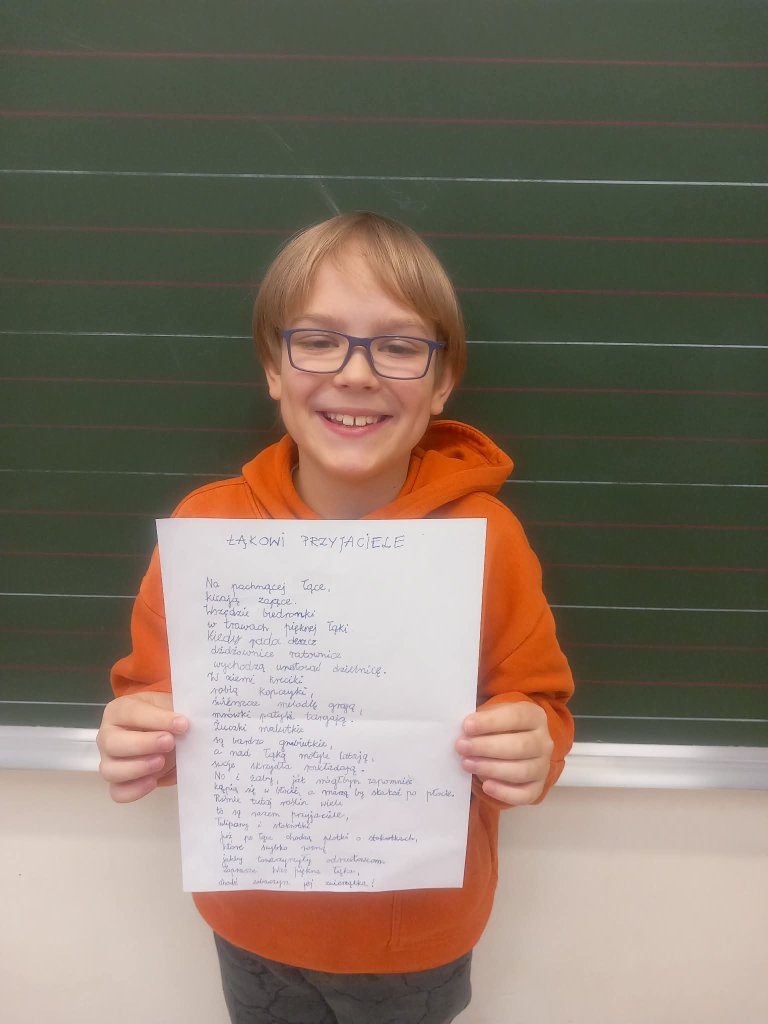 ŁĄKOWI PRZYJACIELE
Na pachnącej łące,
kicają zające.
Wszędzie biedronki
w trawach pięknej łąki.
Kiedy pada deszcz
dżdżownice ratownice
wychodzą uratować dzielnicę.
W ziemi kreciki
robią kopczyki,
świerszcze melodię grają,
mrówki patyki targają.
Żuczki malutkie
są bardzo grubiutkie,
a nad łąką motyle latają,
swoje skrzydła rozkładają.
No i żaby, jak mógłbym zapomnieć
kąpią się w błocie, a marzą by skakać po płocie.
Rośnie tutaj roślin wiele
to są razem przyjaciele,
Tulipany i stokrotki
już po łące chodzą plotki o stokrotkach,
które szybko rosną
jakby towarzyszyły odrzutowcom.
Zaprasza Was piękna łąka,
chodź zobaczyć jej zwierzątka!